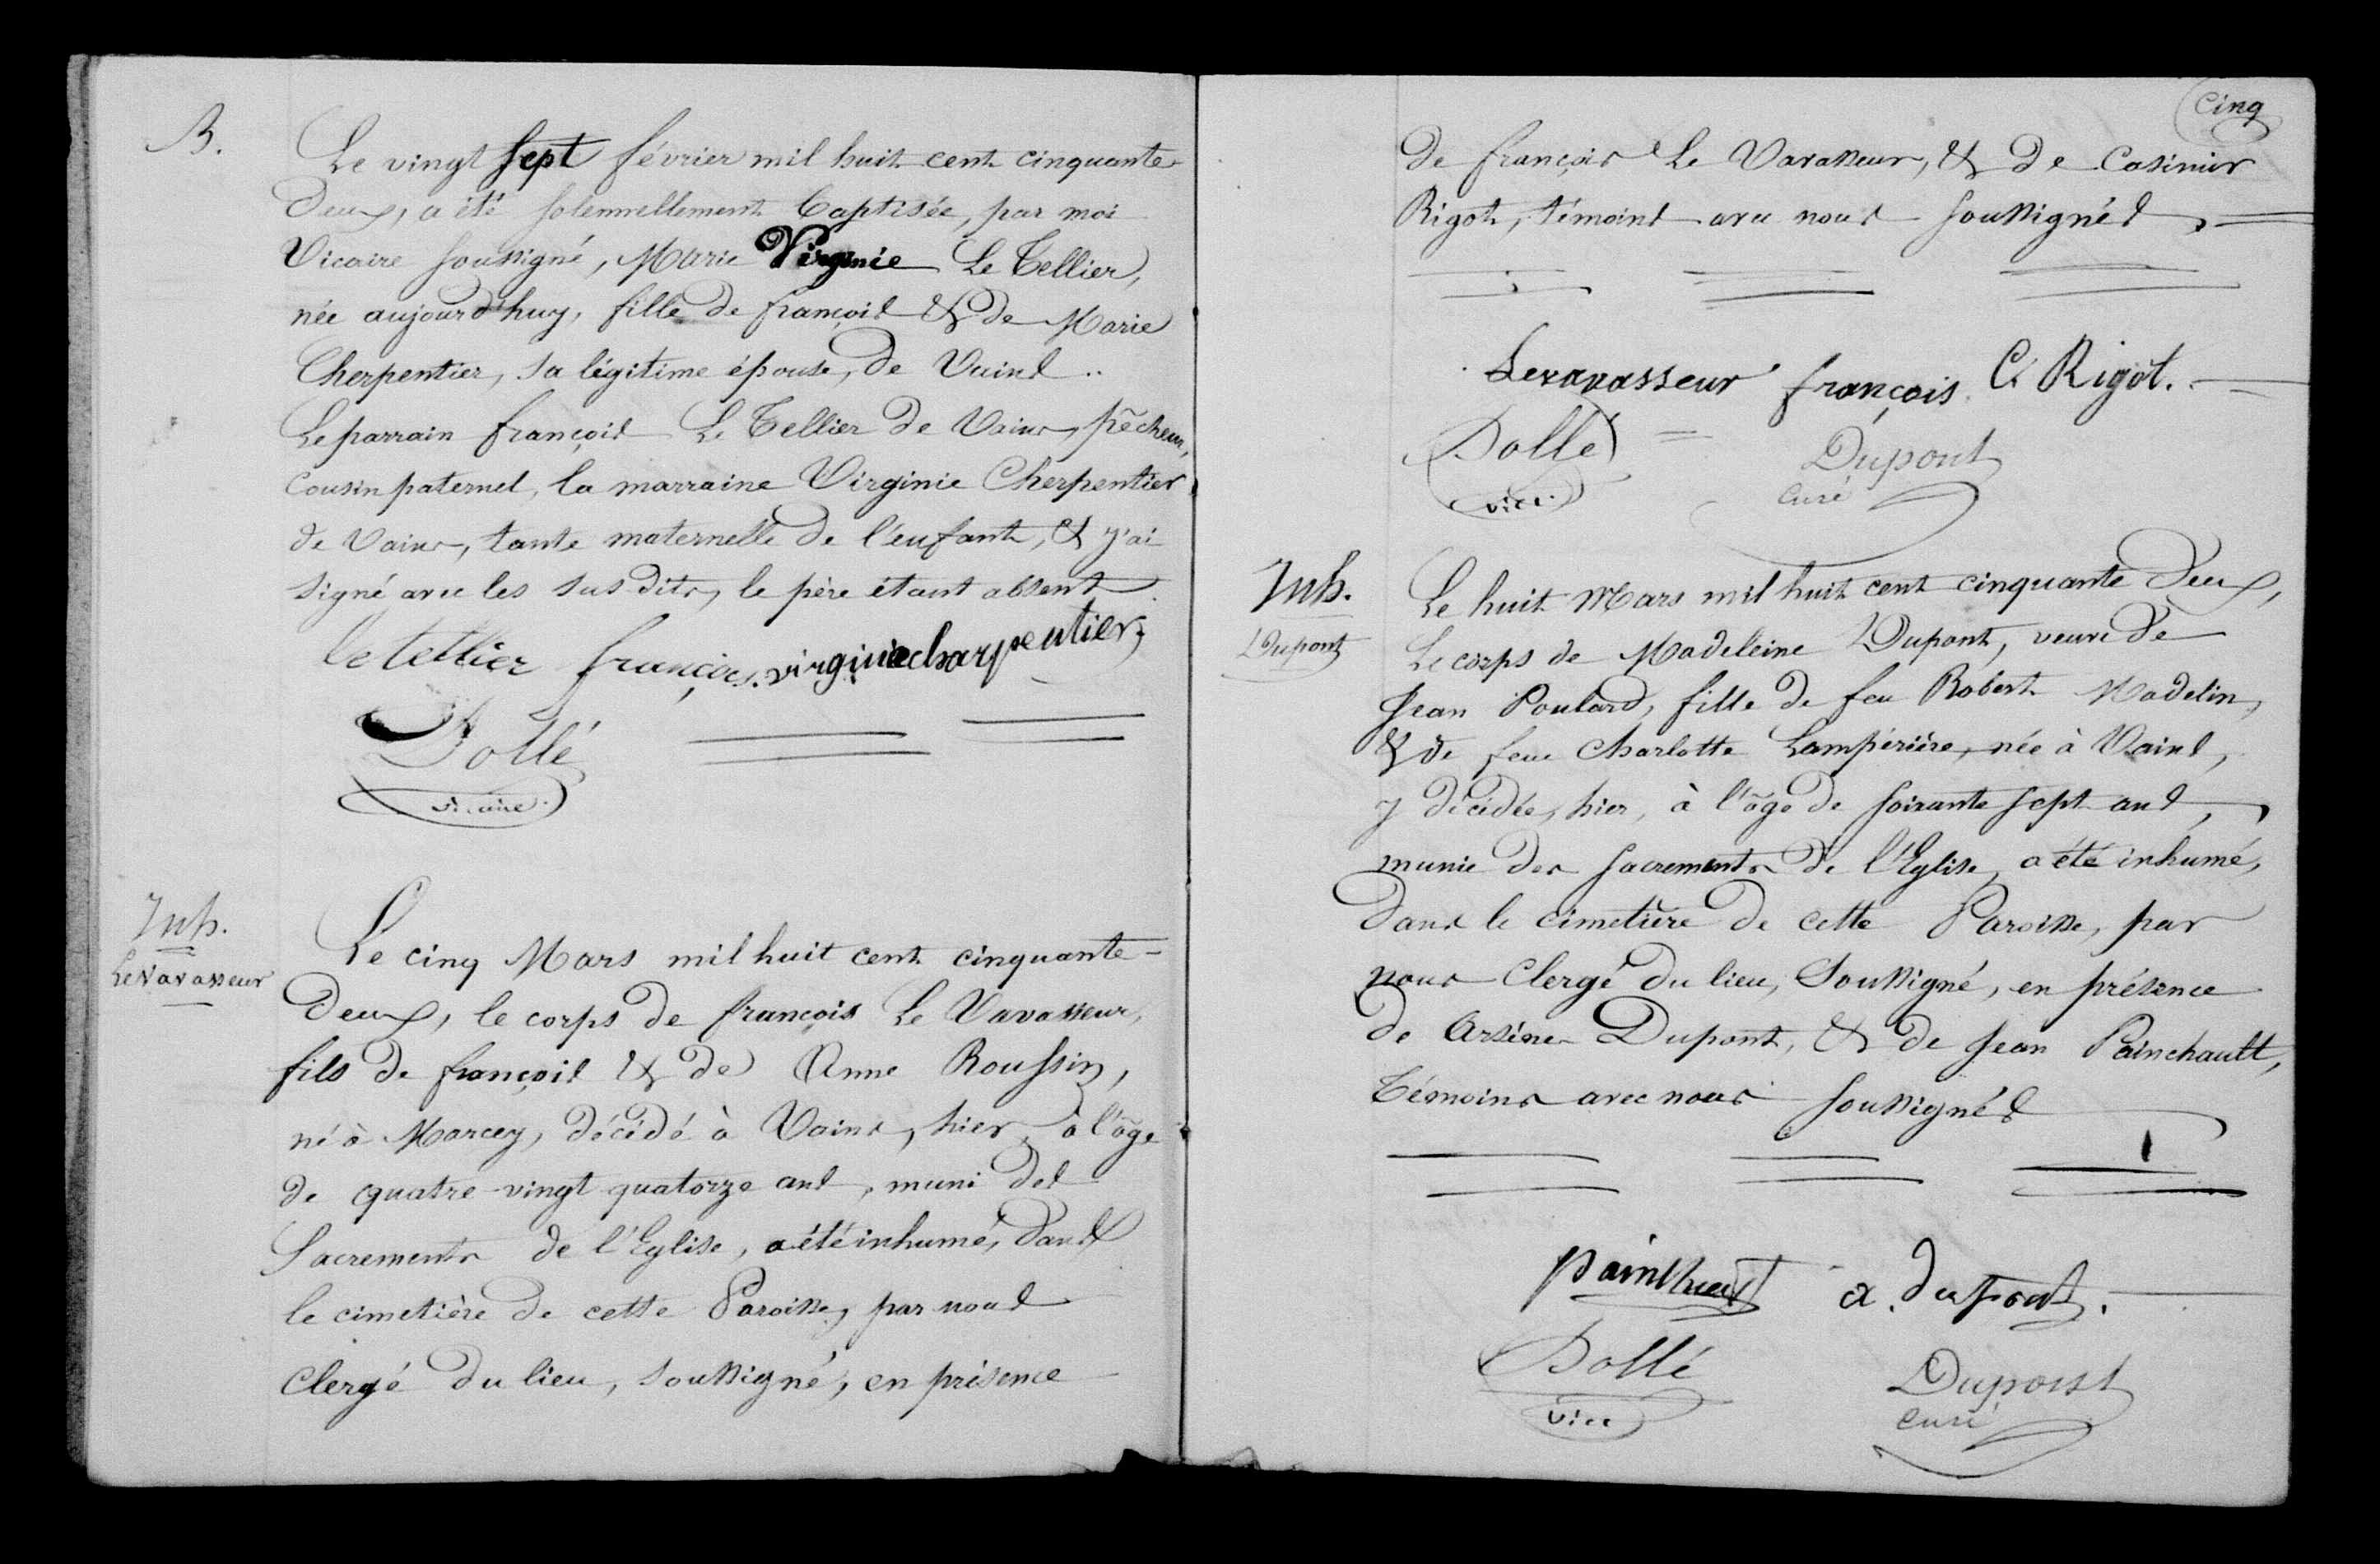 B.
Le vingt sept février mil huit cent cinquante
deux, a été solennellement baptisée, par moi
Vicaire soussigné, Marie Virginie Le Tellier,
née aujourd'huy, fille de françois & de Marie
Cherpentier, sa légitime épouse, de Vains ..
Le parrain françois Le Tellier de Vains, pêcheur,
cousin paternel, la marraine Virginie Cherpentier
de Vains, tante maternelle de l'enfant, & j'ai
signé avec les sus dits, le père étant absent.
le tellier françois. virginie charpentier
Dollé
vicaire.
Inh.
LeVavasseur
Le cinq Mars mil huit cent cinquante-
deux, le corps de françois Le Vavasseur,
fils de françois & de Anne Roussin,
né à Marcey, décédé à Vains, hier, à l'âge
de quatre-vingt quatorze ans, muni des
Sacrements de l'Eglise, a été inhumé, dans
le cimetière de cette Paroisse, par nous
Clergé du lieu, soussigné, en présence
cinq
de françois Le Vavasseur, & de Casimir
Rigot, témoins avec nous soussignés.
Levavasseur françois. C. Rigot.
Dollé
Dupont
vice.
curé
Inh.
Dupont
Le huit Mars mil huit cent cinquante deux,
Le corps de Madeleine Dupont, veuve de
Jean Poulard, fille de feu Robert Madelin,
& de feue Charlotte Lampérière, née à Vains,
y décédée, hier, à l'âge de soixante sept ans,
munie des sacrements de l'Eglise, a été inhumé,
dans le cimetière de cette Paroisse, par
nous Clergé du lieu, Soussigné, en présence
de Arsène Dupont, & de Jean Painchault,
Témoins avec nous soussignés
painchault a. dupont.
Dollé
Dupont
vice
curé